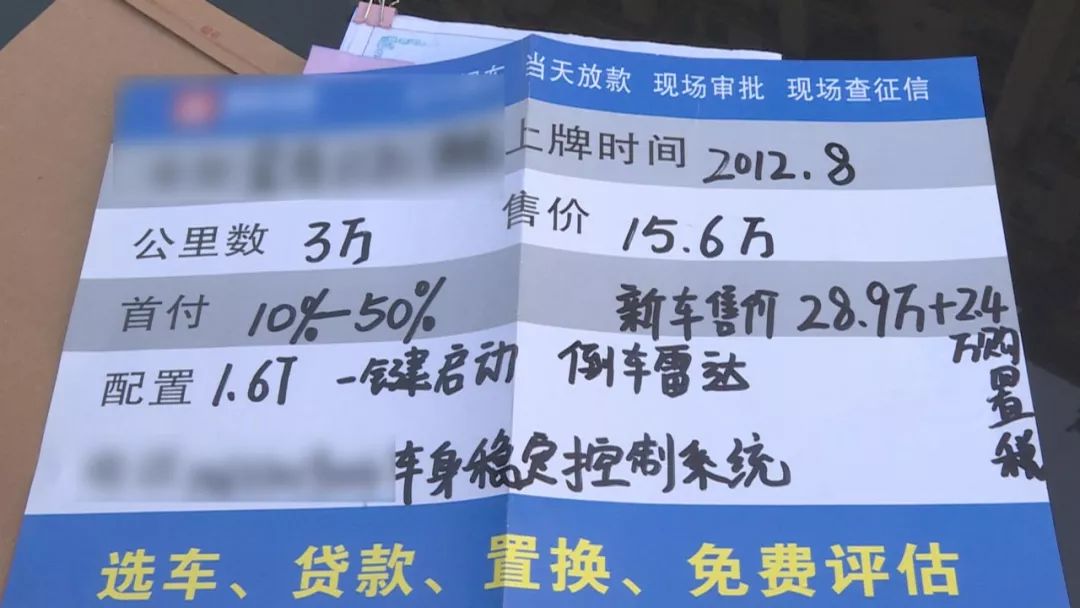 当天放款 现场审批 现场查征信
上牌时间 2012.8
公里数 3万 售价 15.6万
首付 10%-50% 新车售价 28.9万+2.4万购置税
配置 1.6T 一键启动 倒车雷达
车身稳定控制系统
选车、贷款、置换、免费评估